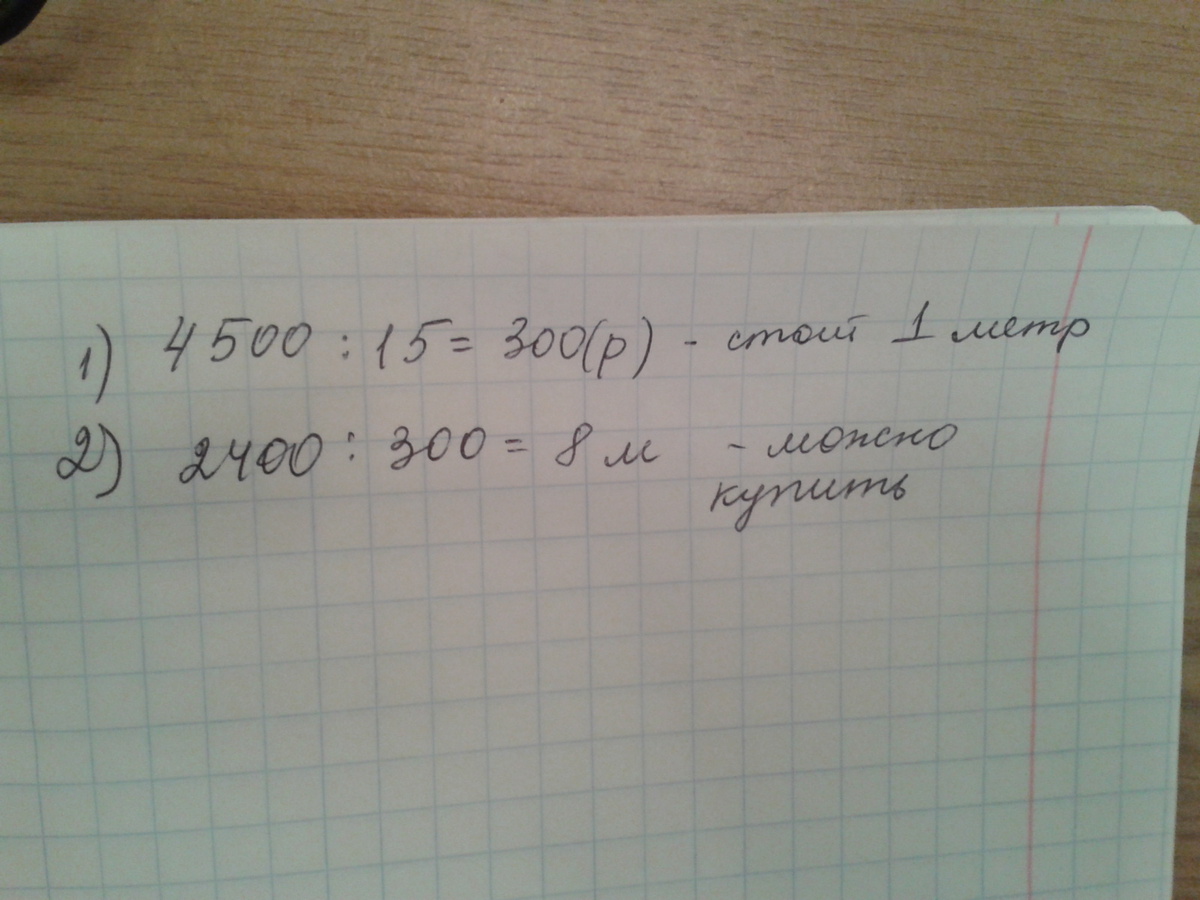 1) 4500 : 15 = 300(р) - стоит 1 метр
2) 2400 : 300 = 8 м - можно
купить